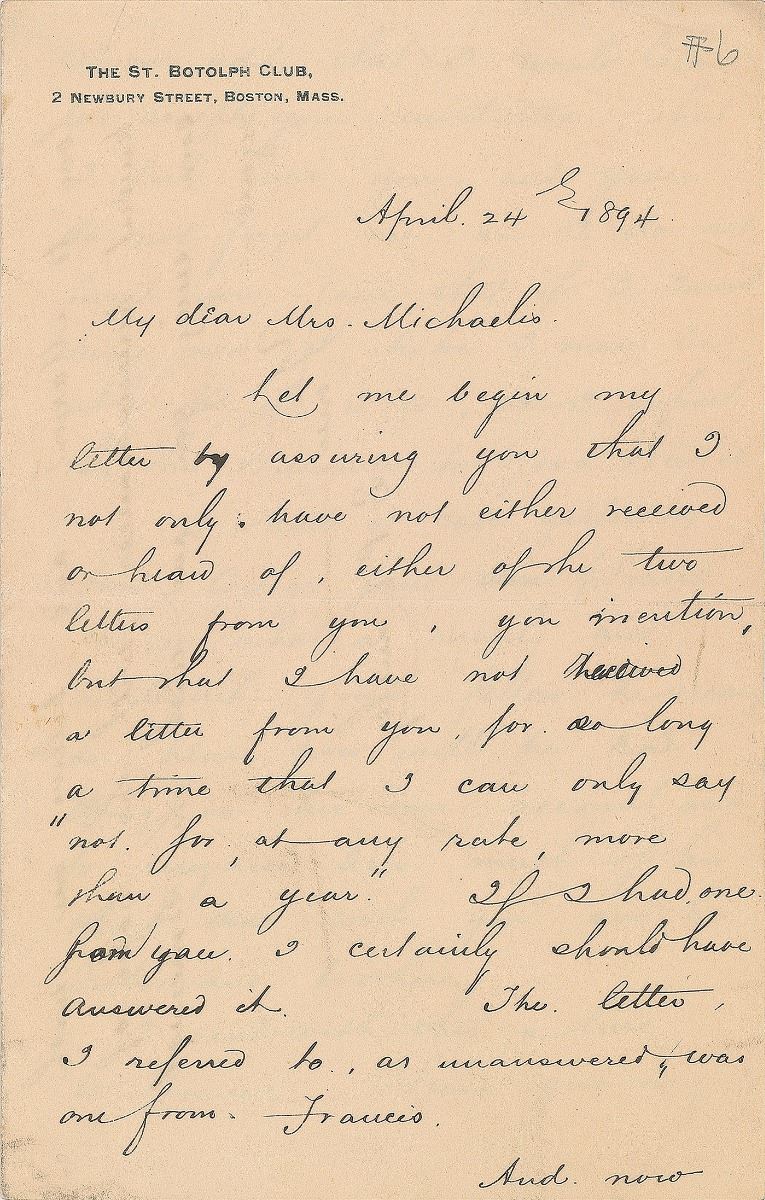 #6
THE ST. BOTOLPH CLUB,
2 NEWBURY STREET, BOSTON, MASS.
April. 24th 1894.
My dear Mrs. Michaelis.
Let me begin my
letter by assuring you that I
not only have not either received
or heard of, either of the two
letters from you, you mention,
but that I have not received
a letter from you, for so long
a time that I can only say
"not for, at any rate, more
than a year." If I had one
from you. I certainly should have
answered it. The letter,
I referred to, as unanswered, was
one from Francis.
And now